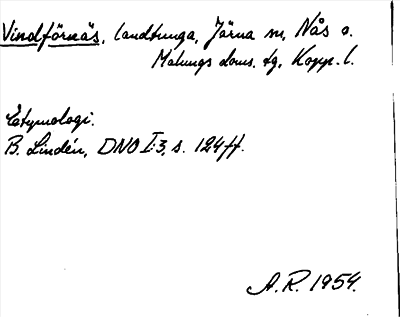 Vindförnäs, landtunga, Järna sn, Nås o.
Malungs doms. tg, Kopp. l.
Etymologi.
B. Lindén, DNO I:3, s. 124 ff.
A.R. 1954.